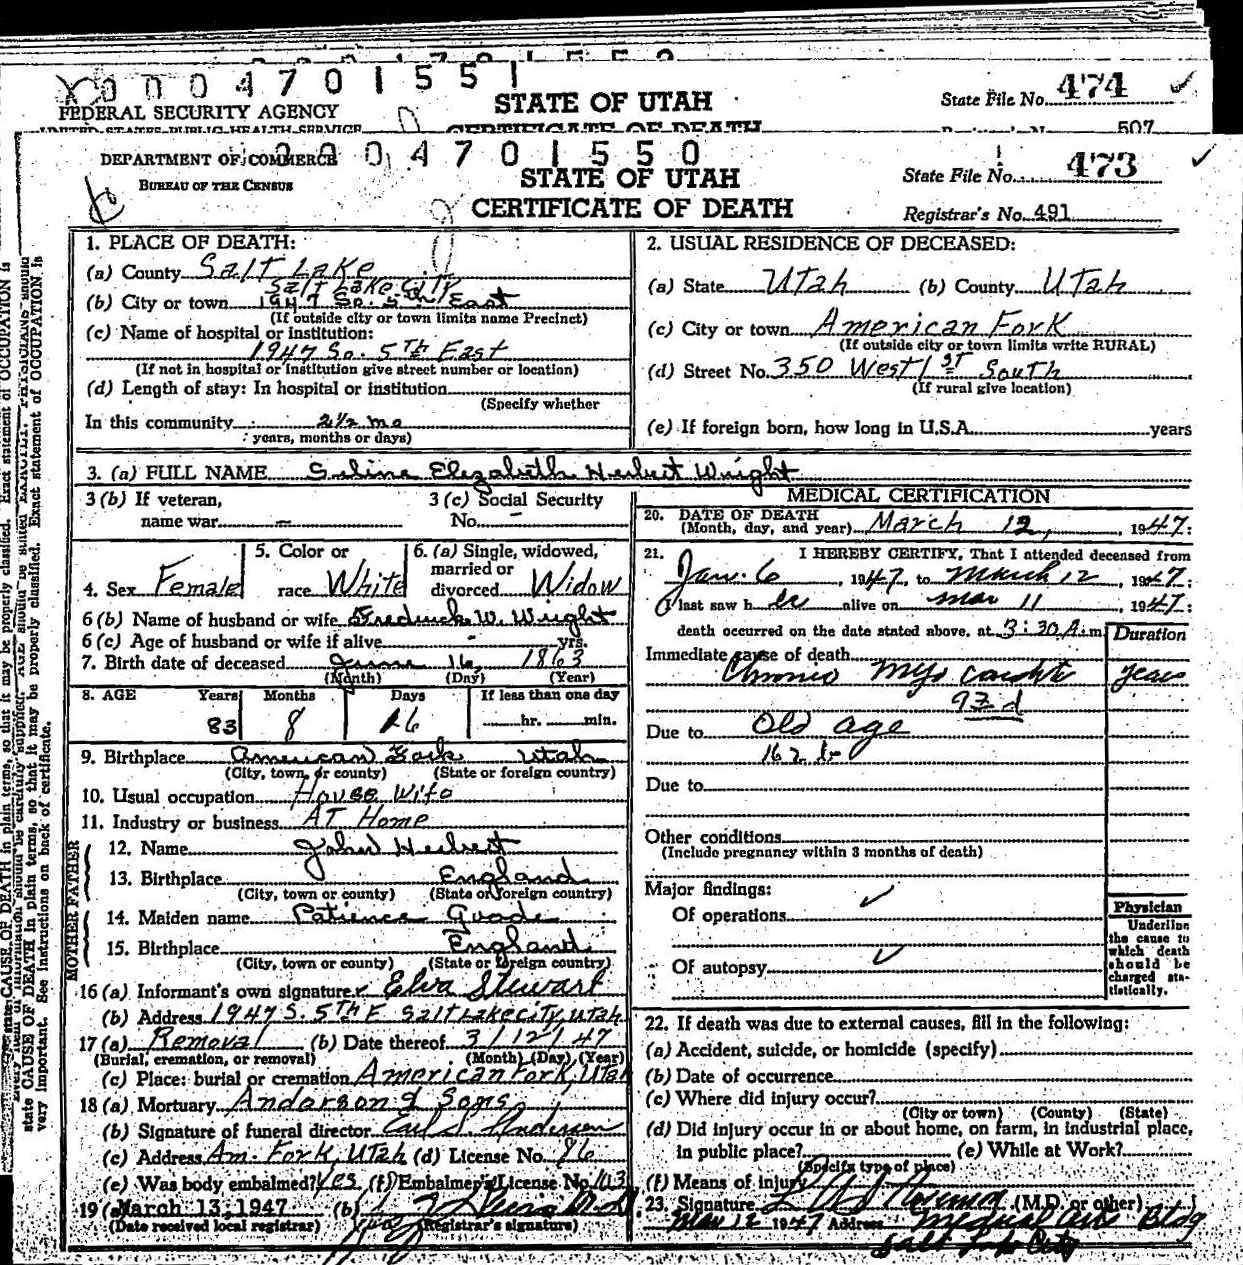 0004701551
FEDERAL SECURITY AGENCY
STATE OF UTAH
State File No. 474
UNITED STATES PUBLIC HEALTH SERVICE
CERTIFICATE OF DEATH
507
DEPARTMENT OF COMMERCE
0004701550
BUREAU OF THE CENSUS
STATE OF UTAH
State File No. 473
CERTIFICATE OF DEATH
Registrar's No. 491
1. PLACE OF DEATH:
(a) County Salt Lake
Salt Lake City
(b) City or town 1947 So. 5th East
(If outside city or town limits name Precinct)
(c) Name of hospital or institution:
1947 So. 5th East
(If not in hospital or institution give street number or location)
(d) Length of stay: In hospital or institution
(Specify whether
In this community 2½ mo
years, months or days)
2. USUAL RESIDENCE OF DECEASED:
(a) State Utah (b) County Utah
(c) City or town American Fork
(If outside city or town limits write RURAL)
(d) Street No. 350 West 1st South
(If rural give location)
(e) If foreign born, how long in U.S.A. years
3. (a) FULL NAME Selina Elizabeth Herbert Wright
3 (b) If veteran,
name war –
3 (c) Social Security
No. –
4. Sex Female
5. Color or
race White
6. (a) Single, widowed,
married or
divorced Widow
6 (b) Name of husband or wife Fredrick W. Wright
6 (c) Age of husband or wife if alive - yrs.
7. Birth date of deceased June 16, 1863
(Month) (Day) (Year)
8. AGE Years Months Days If less than one day
83 8 26 hr. min.
9. Birthplace American Fork Utah
(City, town, or county) (State or foreign country)
10. Usual occupation House Wife
11. Industry or business At Home
FATHER
12. Name John Herbert
13. Birthplace England
(City, town or county) (State or foreign country)
MOTHER
14. Maiden name Patience
15. Birthplace England
(City, town or county) (State or foreign country)
16 (a) Informant's own signature Elva Stewart
(b) Address 1947 S. 5th E Salt Lake City, Utah
17 (a) Removal (b) Date thereof 3/12/47
(Burial, cremation, or removal) (Month) (Day) (Year)
(c) Place: burial or cremation American Fork, Utah
18 (a) Mortuary Anderson & Sons
(b) Signature of funeral director Earl S. Anderson
(c) Address Am. Fork, Utah (d) License No. 86
(e) Was body embalmed? Yes (f) Embalmer's License No. 103
19 (a) March 13, 1947 (b)
(Date received local registrar) (Registrar's signature)
MEDICAL CERTIFICATION
20. DATE OF DEATH
(Month, day, and year) March 12, 1947:
21. I HEREBY CERTIFY, That I attended deceased from
Jan. 6, 1947, to March 12, 1947:
(I last saw her alive on Mar 11, 1947:
death occurred on the date stated above, at 3:30 A.m.
Duration
Immediate cause of death
Chronic Myocarditis years
93 d
Due to Old age
162 b
Due to
Other conditions
(Include pregnancy within 3 months of death)
Major findings:
Of operations
Of autopsy
Physician
Underline
the cause to
which death
should be
charged sta-
tistically.
22. If death was due to external causes, fill in the following:
(a) Accident, suicide, or homicide (specify)
(b) Date of occurrence
(c) Where did injury occur?
(City or town) (County) (State)
(d) Did injury occur in or about home, on farm, in industrial place,
in public place? (e) While at Work?
(Specify type of place)
(f) Means of injury
23. Signature (M.D. or other)
Mar 12 1947 Address Medical Arts Bldg
Salt Lake City